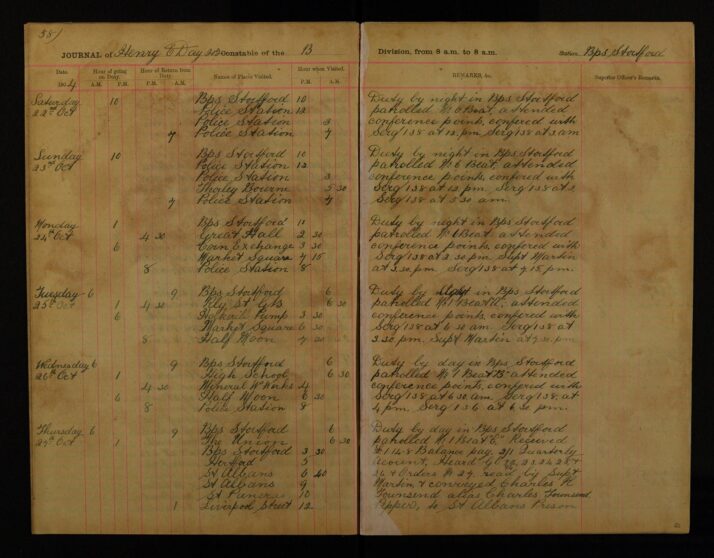 58
JOURNAL of Henry E Day 212 Constable of the B
Division, from 8 a.m. to 8 a.m.
Station Bps Stortford
Date.
Hour of going on Duty.
Hour of Return from Duty.
Names of Places Visited.
Hour when Visited.
REMARKS, &c.
Superior Officer's Remarks.
1904
A.M. P.M. P.M. A.M. P.M. A.M.
Saturday 10 Bps Stortford 10
22nd Oct Police Station 12
Police Station 3
7 Police Station 7
Duty by night in Bps Stortford
patrolled No 6 Beat attended
conference points, confered with
Serg 138 at 12 pm. Serg 138 at 3 am
Sunday 10 Bps Stortford 10
23rd Oct Police Station 12
Police Station 3
Thorley Bourne 5 30
7 Police Station 7
Duty by night in Bps Stortford
patrolled No 6 Beat, attended
conference points, confered with
Serg 138 at 12 pm. Serg 138 at 3
Serg 138 at 5 30 am.
Monday 1 Bps Stortford
24th Oct 4 30 Great Hall 2 30
6 Corn Exchange 3 30
Market Square 7 15
8 Police Station 8
Duty by night in Bps Stortford
patrolled No 1 Beat attended
conference points, confered with
Serg 138 at 2.30 pm. Supt Martin
at 3.30 pm. Serg 138 at 7.15 pm.
Tuesday 6 9 Bps Stortford 6
25th Oct 1 4 30 Rly St 6 30
6 Pump 3 30
Market Square 6 30
8 Half Moon 7 30
Duty by in Bps Stortford
patrolled No 1 Beat attended
conference points, confered with
Serg 138 at 6 30 am. Serg 138 at
3.30 pm. Supt Martin at 7.30 pm.
Wednesday 6 9 Bps Stortford 6
26th Oct 1 High School 6 30
4 30 Mineral Wr Works 4
6 Half Moon 6 30
8 Police Station 8
Duty by day in Bps Stortford
patrolled No 1 Beat "B" attended
conference points, confered with
Serg 138 at 6.30 am. Serg 138 at
4 pm. Serg 136 at 6.30 pm.
Thursday 6 9 Bps Stortford 6
27th Oct 1 The Union 6 30
Bps Stortford 3 30
Hertford 5
St Albans 6 40
St Albans 9
St Pancras 10
1 Liverpool Street 12
Duty by day in Bps Stortford
patrolled No 1 Beat Received
Balance pay 2/1 Quarterly
account, Heard
Orders No 29 read by Supt
Martin & conveyed Charles H
Townsend alias Charles Townsend
Pepper, to St Albans Prison